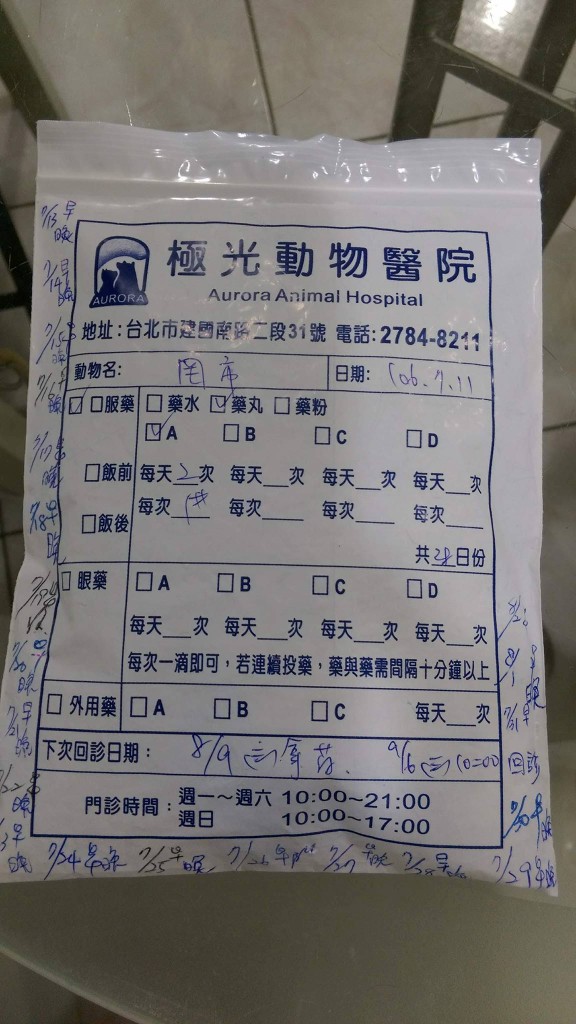 極光動物醫院
AURORA
Aurora Animal Hospital
地址:台北市建國南路二段31號 電話:2784-8211
動物名: 日期: 106.7.11
口服藥 藥水 藥丸 藥粉
A B C D
飯前 每天2次 每天___次 每天___次 每天___次
飯後 每次 每次____ 每次____ 每次____
共28日份
眼藥 A B C D
每天___次 每天___次 每天___次 每天___次
每次一滴即可,若連續投藥,藥與藥需間隔十分鐘以上
外用藥 A B C 每天___次
下次回診日期: 8/9 9/6 10:00 回診
門診時間: 週一~週六 10:00~21:00
週日 10:00~17:00
7/13 早
晚
7/14 早
晚
7/15
7/17
7/18 早
晚
7/21 早
晚
7/24 早晚 7/25 早晚 7/26 早 7/27 早晚 7/28 早 7/29 早晚
7/30 早
晚